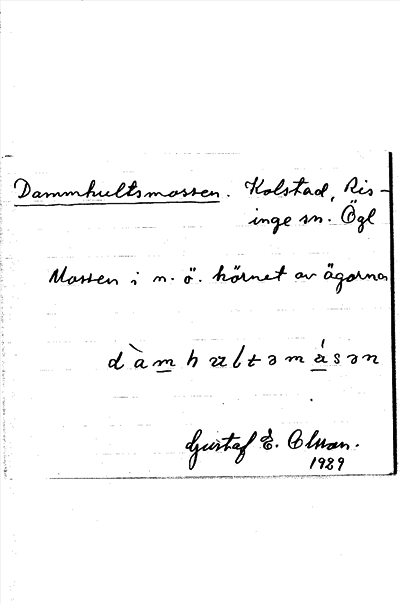 Dammhultsmossen. Kolstad, Ris-
inge sn. Ögl
Mossen i n. ö. hörnet av ägorna
dàmhultəmásən
Gustaf E. Olsson.
1929